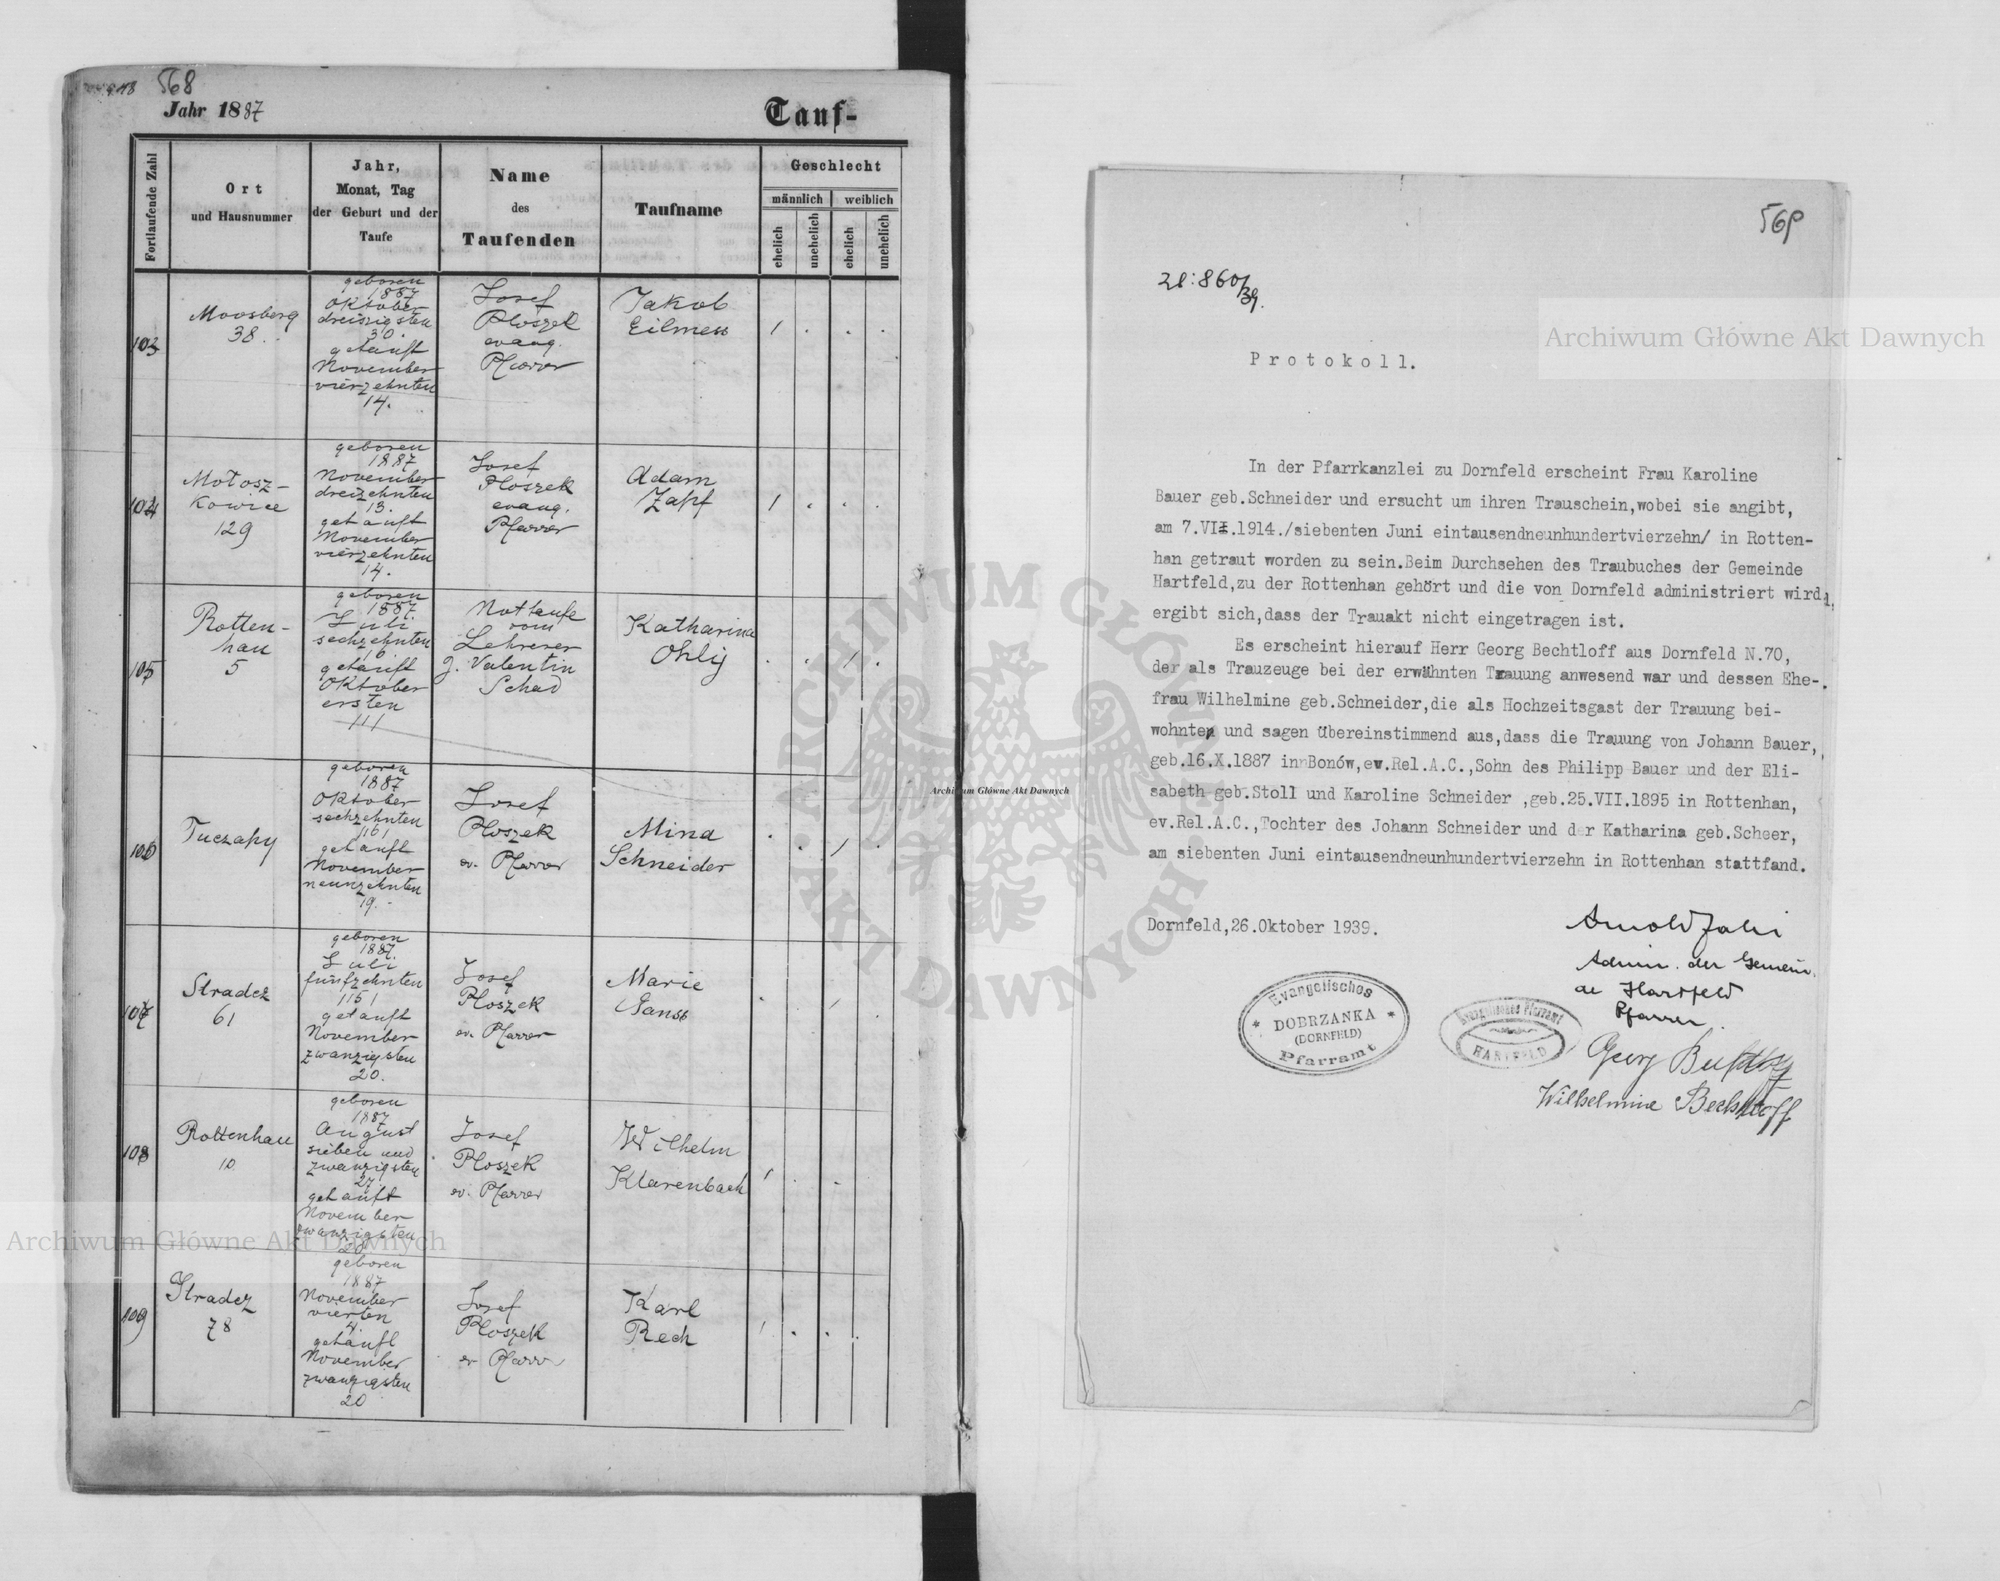 568
Jahr 1887
Tauf-
Fortlaufende Zahl
Ort
und Hausnummer
Jahr,
Monat, Tag
der Geburt und der
Taufe
Name
des
Taufenden
Taufname
Geschlecht
männlich
weiblich
ehelich
unehelich
ehelich
unehelich
103
Moosberg
38.
geboren
1887
Oktober
dreiszigsten
30.
getauft
November
vierzehnten
14.
Josef
Ploszek
evang.
Pfarrer
Jakob
Eilmess
104
Mołosz-
kowice
129
geboren
1887
November
dreizehnten
13.
getauft
November
vierzehnten
14.
Josef
Ploszek
evang.
Pfarrer
Adam
Zapf
105
Rotten-
hau
5
geboren
1887.
Juli
sechzehnten
16
getauft
Oktober
ersten
/1/
Nottaufe
vom
Lehrerer
J. Valentin
Schad
Katharina
Ohlij
106
Tuczapy
geboren
1887
Oktober
sechzehnten
/16/
getauft
November
neunzehnten
19.
Josef
Ploszek
ev. Pfarrer
Mina
Schneider
107
Stradcz
61
geboren
1887.
Juli
fünfzehnten
/15/
getauft
November
zwanzigsten
20.
Josef
Ploszek
ev. Pfarrer
Marie
Ganss
108
Rottenhau
10
geboren
1887
August
sieben und
zwanzigsten
27.
getauft
November
zwanzigsten
20
Josef
Ploszek
ev. Pfarrer
Wilhelm
Klarenbach
109
Stradcz
78
geboren
1887
November
vierten
4.
getauft
November
zwanzigsten
20
Josef
Ploszek
ev Pfarrer
Karl
Rech
569
Zl:860/39.
Protokoll.
In der Pfarrkanzlei zu Dornfeld erscheint Frau Karoline
Bauer geb.Schneider und ersucht um ihren Trauschein,wobei sie angibt,
am 7.VI.1914./siebenten Juni eintausendneunhundertvierzehn/ in Rotten-
han getraut worden zu sein.Beim Durchsehen des Traubuches der Gemeinde
Hartfeld,zu der Rottenhan gehört und die von Dornfeld administriert wird,
ergibt sich,dass der Trauakt nicht eingetragen ist.
Es erscheint hierauf Herr Georg Bechtloff aus Dornfeld N.70,
der als Trauzeuge bei der erwähnten Trauung anwesend war und dessen Ehe-
frau Wilhelmine geb.Schneider,die als Hochzeitsgast der Trauung bei-
wohnte, und sagen übereinstimmend aus,dass die Trauung von Johann Bauer,
geb.16.X.1887 in Bonów,ev.Rel.A.C.,Sohn des Philipp Bauer und der Eli-
sabeth geb.Stoll und Karoline Schneider ,geb.25.VII.1895 in Rottenhan,
ev.Rel.A.C.,Tochter des Johann Schneider und der Katharina geb.Scheer,
am siebenten Juni eintausendneunhundertvierzehn in Rottenhan stattfand.
Dornfeld,26.Oktober 1939.
Admin. der Gemein.
de Hartfeld
Pfarrer.
Evangelisches
DOBRZANKA
(DORNFELD)
Pfarramt
Evangelisches Pfarramt
HARTFELD
Georg
Wilhelmine Bechtloff
Archiwum Główne Akt Dawnych
Archiwum Główne Akt Dawnych
Archiwum Główne Akt Dawnych
ARCHIWUM GŁÓWNE
AKT DAWNYCH